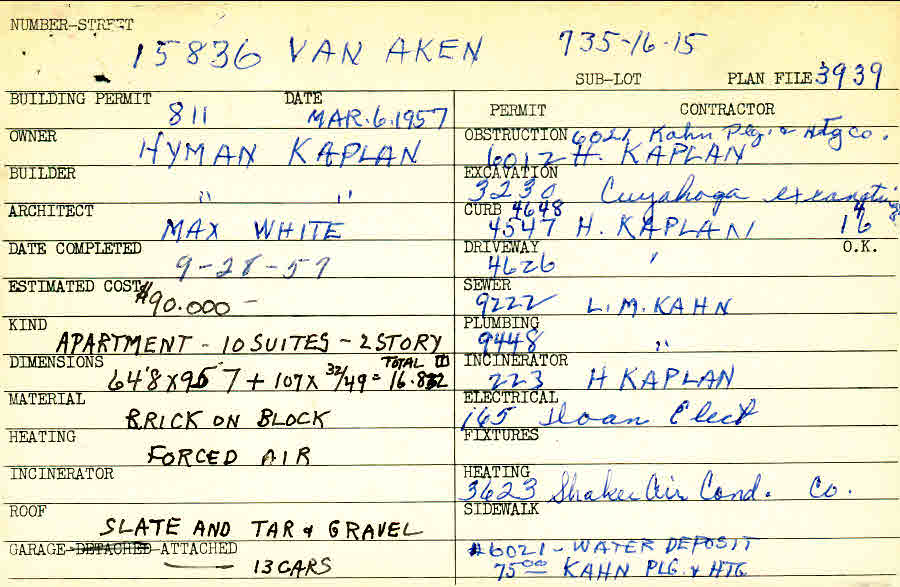 NUMBER-STREET
15836 VAN AKEN 735-16-15
SUB-LOT PLAN FILE 3939
BUILDING PERMIT 811 DATE MAR. 6. 1957
OWNER HYMAN KAPLAN
BUILDER " "
ARCHITECT MAX WHITE
DATE COMPLETED 9-28-57
ESTIMATED COST $90.000 -
KIND APARTMENT - 10 SUITES - 2 STORY
DIMENSIONS 64'8 X 95 7 + 107 X 32/49 = TOTAL 16.832
MATERIAL BRICK ON BLOCK
HEATING FORCED AIR
INCINERATOR
ROOF SLATE AND TAR & GRAVEL
GARAGE-DETACHED-ATTACHED 13 CARS
PERMIT CONTRACTOR
OBSTRUCTION 6021 Kahn Plg. & Htg Co.
6012 H. KAPLAN
EXCAVATION
3230 Cuyahoga
CURB 4648
4547 H. KAPLAN 16
DRIVEWAY O.K.
4626 "
SEWER
9222 L. M. KAHN
PLUMBING
9448 "
INCINERATOR
223 H KAPLAN
ELECTRICAL
165 Sloan Elect
FIXTURES
HEATING
3623 Shaker Air Cond. Co.
SIDEWALK
#6021 - WATER DEPOSIT
75 00 KAHN PLG. & HTG